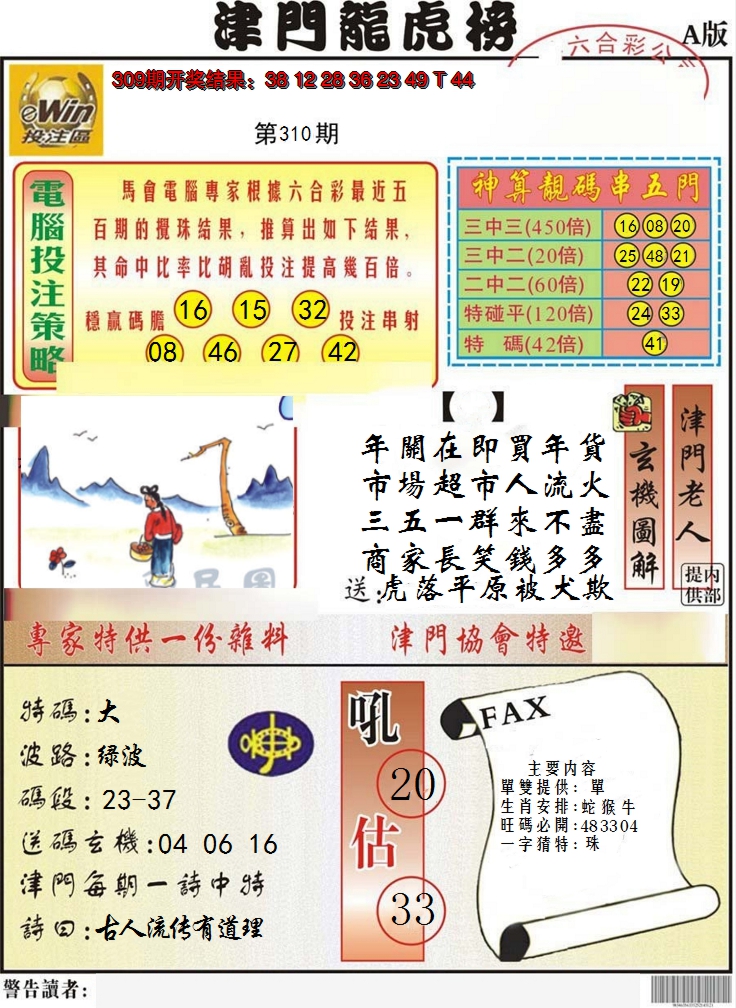 津門龍虎榜
A版
六合彩公
309期开奖结果：38 12 28 36 23 49 T 44
eWin
投注區
第310期
電腦投注策略
馬會電腦專家根據六合彩最近五
百期的攪珠结果，推算出如下结果，
其命中比率比胡亂投注提高幾百倍。
穩赢碼膽 16 15 32 投注串射
08 46 27 42
神算靚碼串五門
三中三(450倍) 16 08 20
三中二(20倍) 25 48 21
二中二(60倍) 22 19
特碰平(120倍) 24 33
特 碼(42倍) 41
【 】
年關在即買年貨
市場超市人流火
三五一群來不盡
商家長笑錢多多
送:虎落平原被犬欺
玄機圖解
津門老人
內部提供
專家特供一份雜料
津門協會特邀
特碼:大
波路:绿波
碼段:23-37
送碼玄機:04 06 16
津門每期一詩中特
詩曰:古人流传有道理
吼
20
估
33
FAX
主要内容
單雙提供：單
生肖安排:蛇猴牛
旺碼必開:483304
一字猜特:珠
警告讀者: